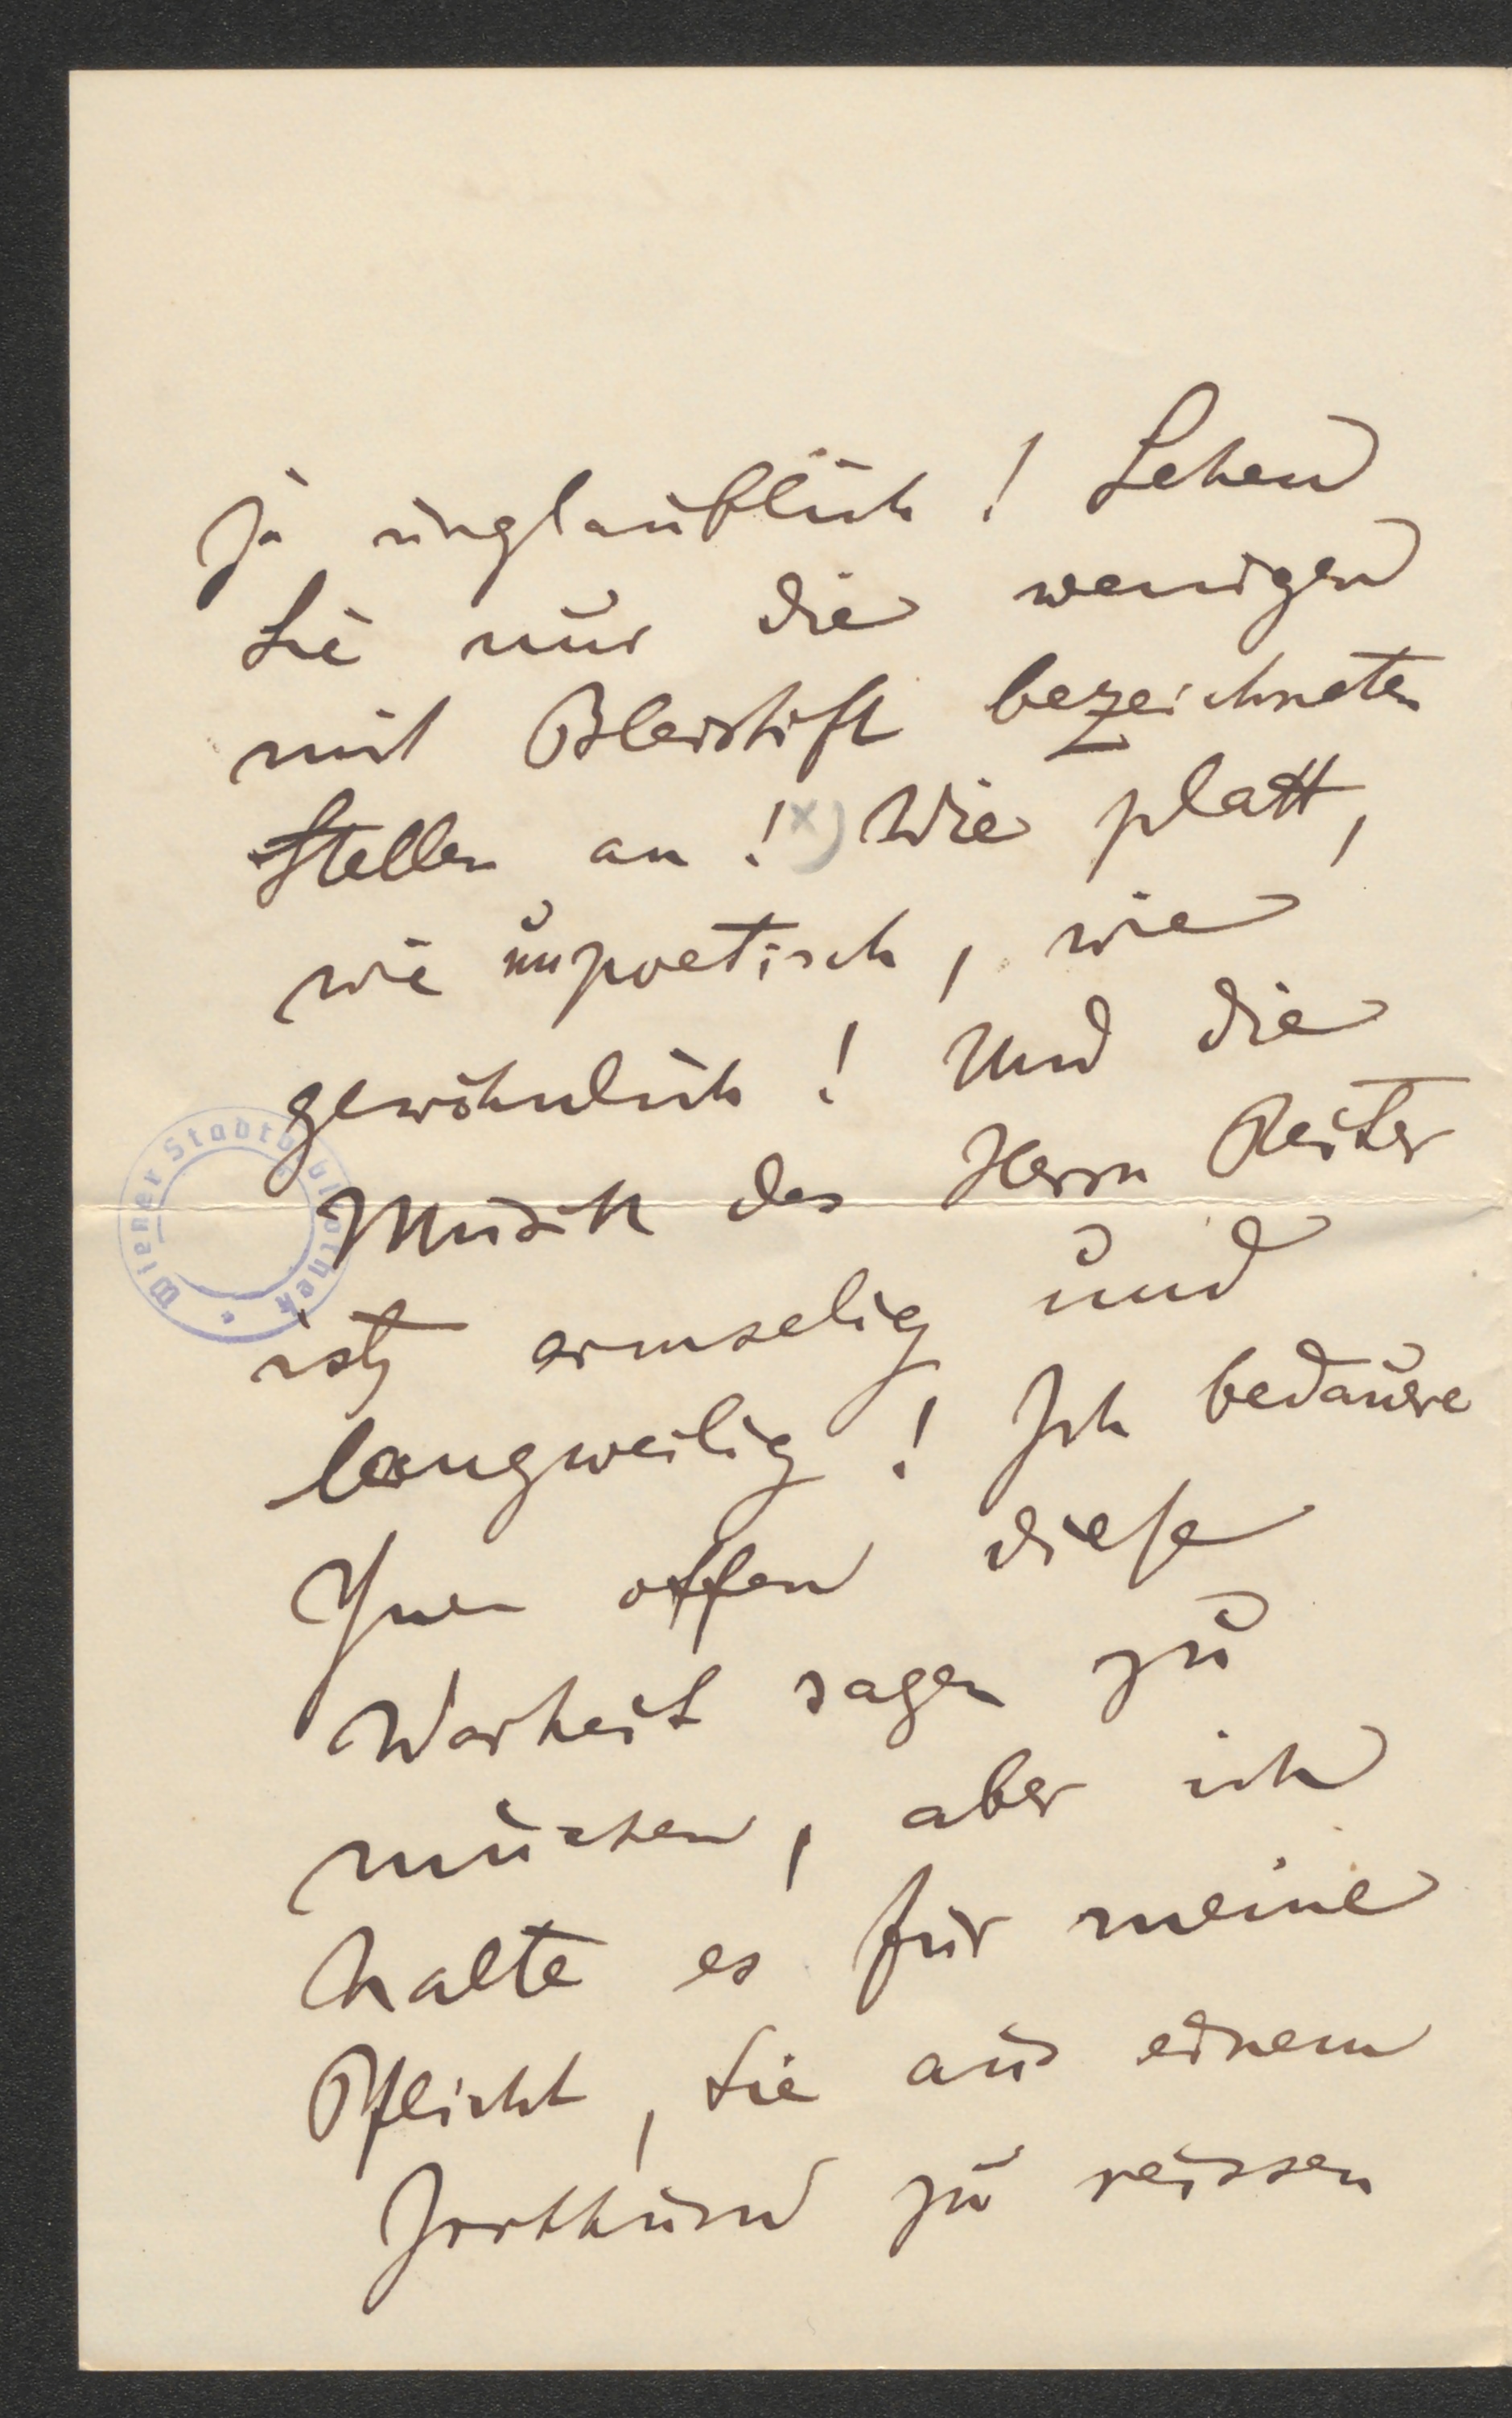 ja unglaublich! Sehen
Sie nur die wenigen
mit Bleistift bezeichneten
Stellen an! x) Wie platt,
wie unpoetisch, wie
gewöhnlich! Und die
Musik des Herrn Reiter
ist armselig und
langweilig! Ich bedaure
Ihnen offen diese
Warheit sagen zu
müssen, aber ich
halte es für meine
Pflicht, Sie aus einem
Irrthum zu reissen
Wiener Stadtbibliothek